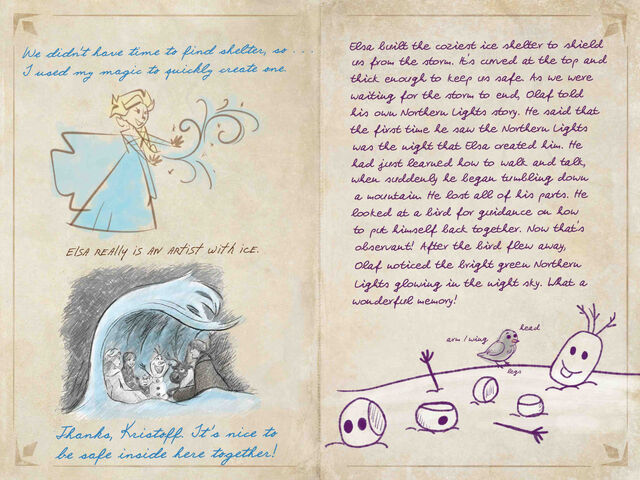 We didn't have time to find shelter, so . . .
I used my magic to quickly create one.
ELSA REALLY IS AN ARTIST WITH ICE.
Thanks, Kristoff. It's nice to
be safe inside here together!
Elsa built the coziest ice shelter to shield
us from the storm. It's curved at the top and
thick enough to keep us safe. As we were
waiting for the storm to end, Olaf told
his own Northern Lights story. He said that
the first time he saw the Northern Lights
was the night that Elsa created him. He
had just learned how to walk and talk,
when suddenly he began tumbling down
a mountain. He lost all of his parts. He
looked at a bird for guidance on how
to put himself back together. Now that's
observant! After the bird flew away,
Olaf noticed the bright green Northern
Lights glowing in the night sky. What a
wonderful memory!
head
arm / wing
legs